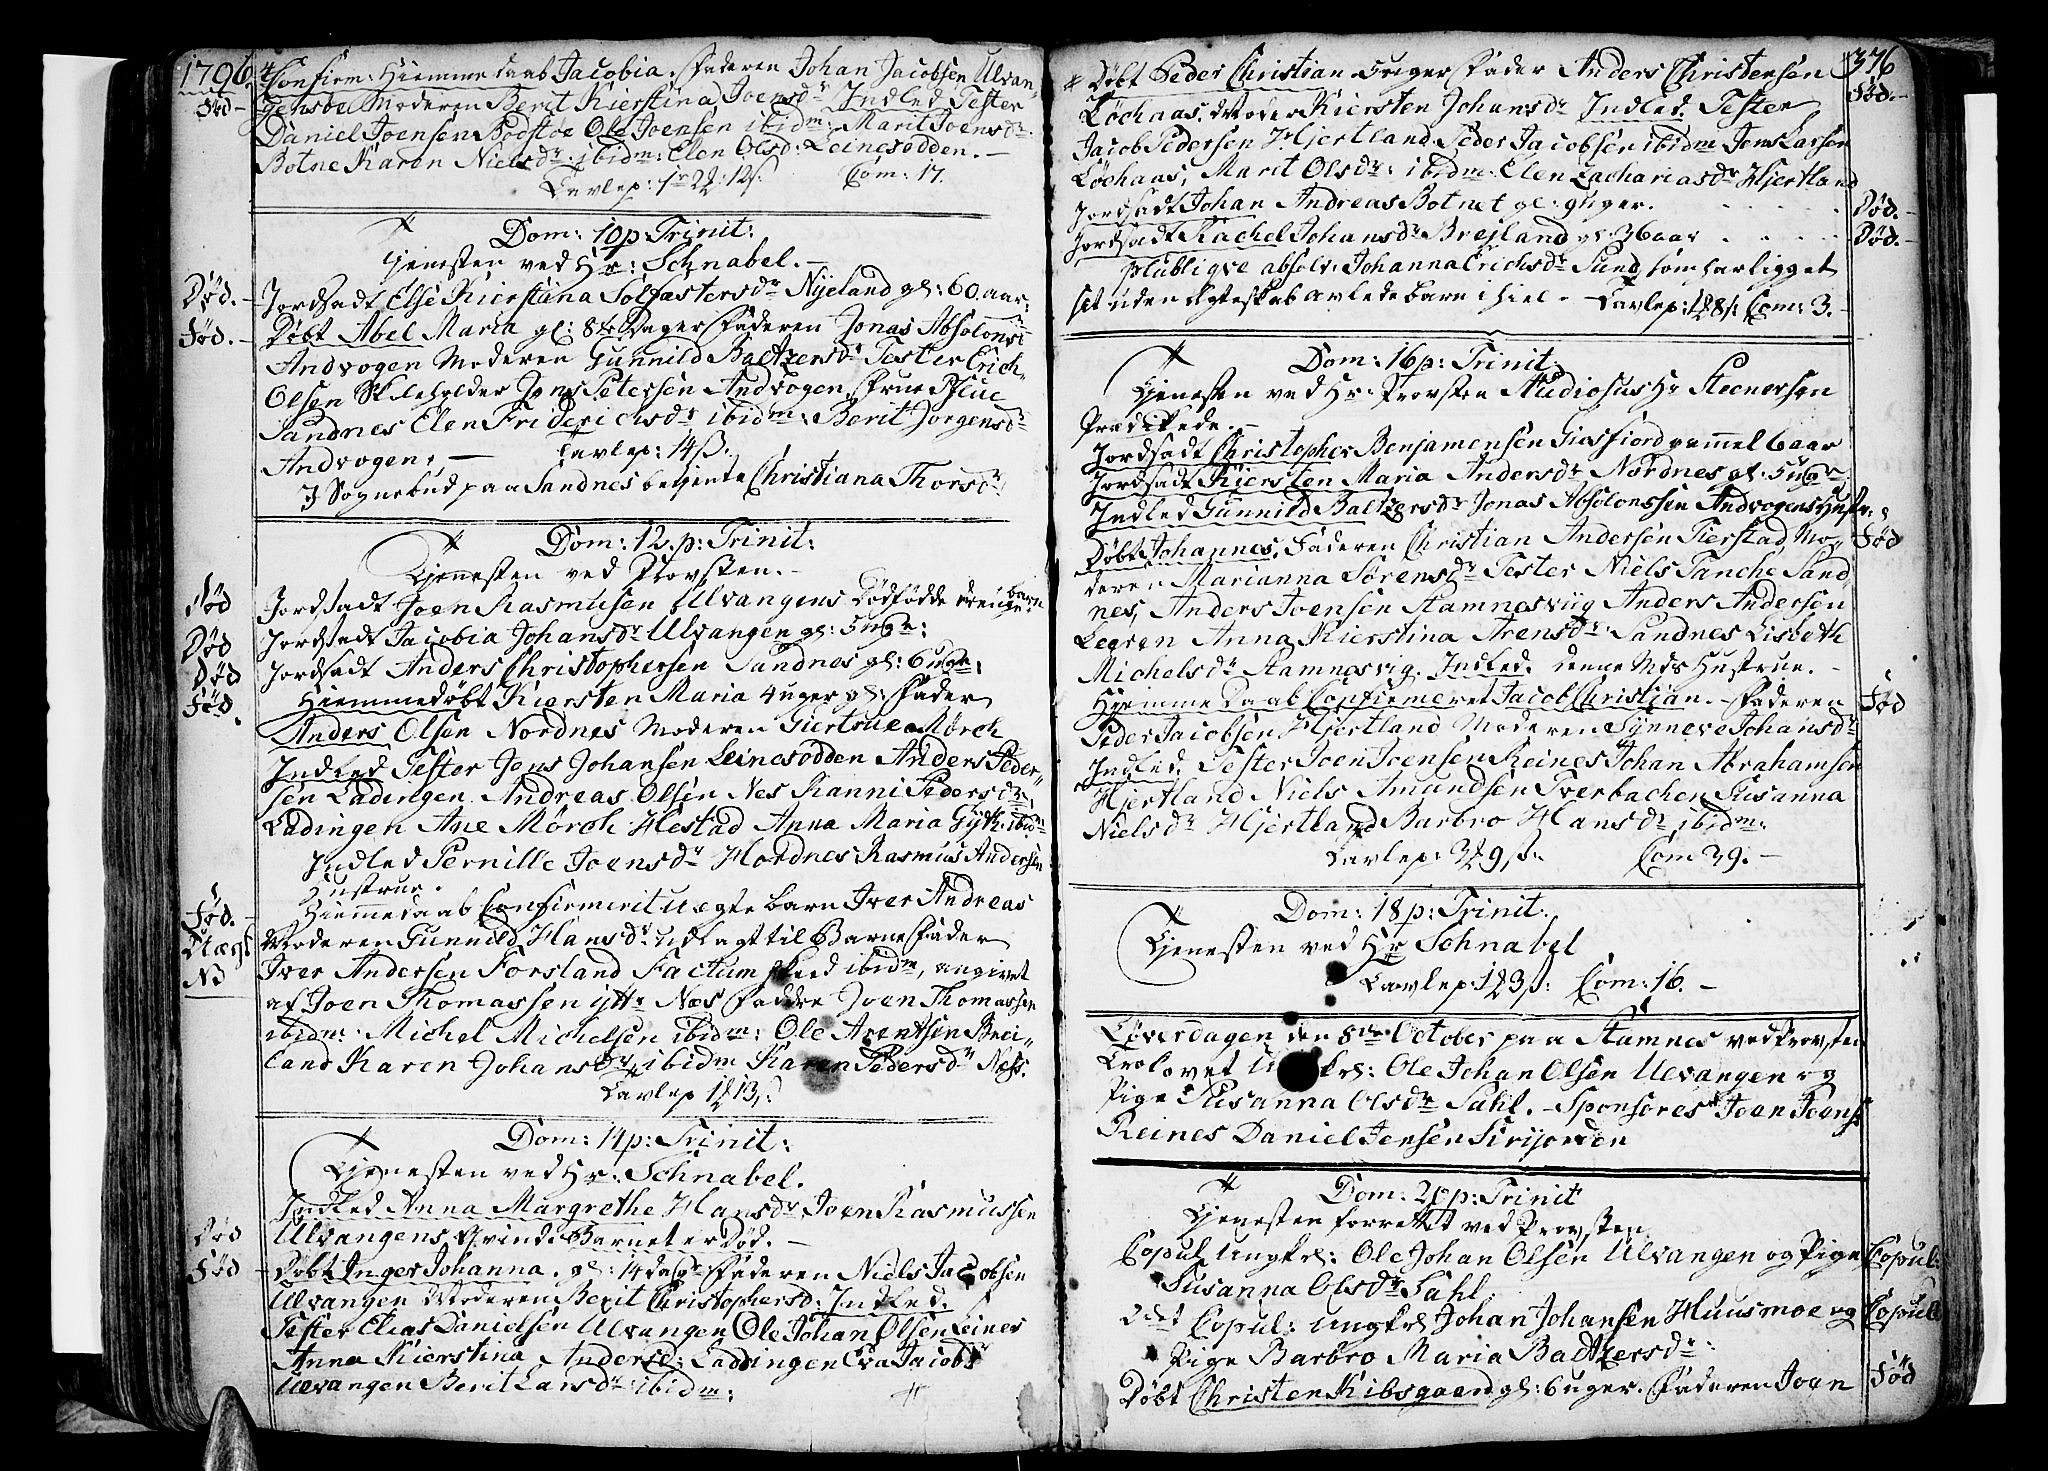 1796
Confirm: Hiemmedaab Jacobia. Faderen Johan Jacobsen Ulvan-
Fød-
gens Moderen Berit Kierstina Joensdr Indled. Tester
Daniel Joensen Bodstøe Ole Joensen ibidm: Marit Joensdr
Botne Karen Nielsdr: ibidm: Elen Olsd: Leinesodden.-
Com: 17.
Dom: 10 p: Trinit:
Tjenesten ved Hr: Schnabel.-
Død.- Jordsadt Else Kierstina Solfastersdr Nyeland gl: 60 aar
Fød.- Døbt Abel Maria gl: 8te Dager Faderen Jonas Absolons:
Andvogen Moderen Gunnild Baltzersdr Tester Erich
Olsen Jens Petersen Andvogen, frue
Sandnes Elen Friderichsdr ibidm: Berit Jørgensdr
Andvogen.- Tavlep: 14 ß.
I Sognebud paa Sandnes betjente Christiana Thorsdr
Dom: 12. p: Trinit:
Tjenesten ved Provsten.-
Død Jordsadt Joen Rasmusen Ulvangens dødfødde drenge barn
Død Jordsadt Jacobia Johansdr Ulvangen gl: 5 uger:
Død Jordsadt Anders Christophersen Sandnes gl: 6 uger:
Fød. Hiemmedøbt Kiersten Maria 4 uger gl: Fader
Anders Olsen Nordnes Moderen Giertrue Mørch
Indled Tester Jens Johansen Leinesodden Anders Peder-
sen Ladingen Andreas Olsen Nes Ranni Pedersdr,
Ladingen Ane Mørch Hestad Anna Maria Gyth ibidm:
Indled Pernille Joensdr Hordnes Rasmus Andersen
Hustrue.
Fød.- Hiemmedaab Confirmerit Uægte barn Iver Andreas
Uægt Moderen Gunnild Hansdr udlagt til Barne Fader
NB Iver Andersen Forsland Factum skeed ibidm, angivet
af Joen Thomassen ytr Næs Faddre Joen Thomassen
ibidm: Michel Michelsen ibidm: Ole Arentsen Brei-
land Karen Johansdr ibidm Karen Pedersdr Ness.
Tavlep 1 13 ß
Dom: 14 p: Trinit:
Tjenesten ved Hr: Schnabel.
Indled Anna Margrethe Hansdr Joen Rasmussen
Død Ulvangens Qvinde Barnet er Død.-
Fød - Døbt Inger Johanna. gl: 14 dage Faderen Niels Jacobsen
Ulvangen Moderen Berit Christophersd: Indled.
Tester Elias Danielsen Ulvangen Ole Johan Olsen Leines
Anna Kierstina Andersd: Laddingen Eva Jacobsdr
Ulvangen Berit Larsdr: ibidm:
376
Døbt Peder Christian Fader Anders Christensen Fød.-
Løchaas. Moder Kiersten Johansdr Indled. Tester
Jacob Pedersen Hjertland Peder Jacobsen ibidm Jens Larsen
Løchaas, Marit Olsdr: ibidm: Elen Zachariasdr Hjertland
Jordsadt Johan Andreas Botnet gl: 9 uger. Død.-
Jordsadt Rachel Johansdr Brejland gl: 36 aar Død.-
Publiqve absolv: Johanna Erichsdr Sund som har ligget
sit uden Egteskab avlede barn ihiel.- Tavlep: 1 8 ß: Com: 3.-
Dom: 16 p: Trinit:
Tjenesten ved Hr: Provsten Studiosus Hr Steenersen
Prædikede.-
Jordsadt Christopher Benjamensen Giesfiord gammel 6 aar
Jordsadt Kiersten Maria Andersdr Nordnes gl: 5 uger
Indled Gunnild Baltzersdr Jonas Absolonssen Andvogens Hustr:
Døbt Johannes, Faderen Christian Andersen Tierstad, Mo- Fød
deren Marianna Sørensdr Tester Niels Tanche Sand-
nes, Anders Joensen Stamnesviig Anders Andersen
Leeren Anna Kierstina Arensdr Sandnes Lisbeth
Michelsdr Stamnesvig. Indled. denne Mds Hustrue.-
Hjemme Daab Confirmeret Jacob Christian.- Faderen Fød
Peder Jacobsen Hjertland Moderen Synneve Johansdr
Indled. Tester Joen Joensen Reines Johan Abrahamsen
Hjertland Niels Amundsen Tverbachen Susanna
Nielsdr Hjertland Barbro Hansdr ibidm:
Tavlep: 3 9 ß: Com 39.-
Dom: 18 p: Trinit:
Tjenesten ved Hr Schnabel
Tavlep: 1 3 ß: Com: 16.-
Løverdagen den 8de October paa Stamnes ved Provsten
Trolovet Ole Johan Olsen Ulvangen og
Pige Susanna Olsdr Sahl.- Sponsores Joen Joens:
Reines Daniel Jensen Sirijorden
Dom: 20 p: Trinit
Tjenesten forrettet ved Provsten
Copul Ungkrl: Ole Johan Olsen Ulvangen og Pige Copul:
Susanna Olsdr Sahl
Copul: Ungkrl Johan Johansen Huusmoe og Copul
Pige Barbro Maria Baltzersdr:
Døbt Christen Kibsgaard gl: 6 uger. Faderen Joen Fød